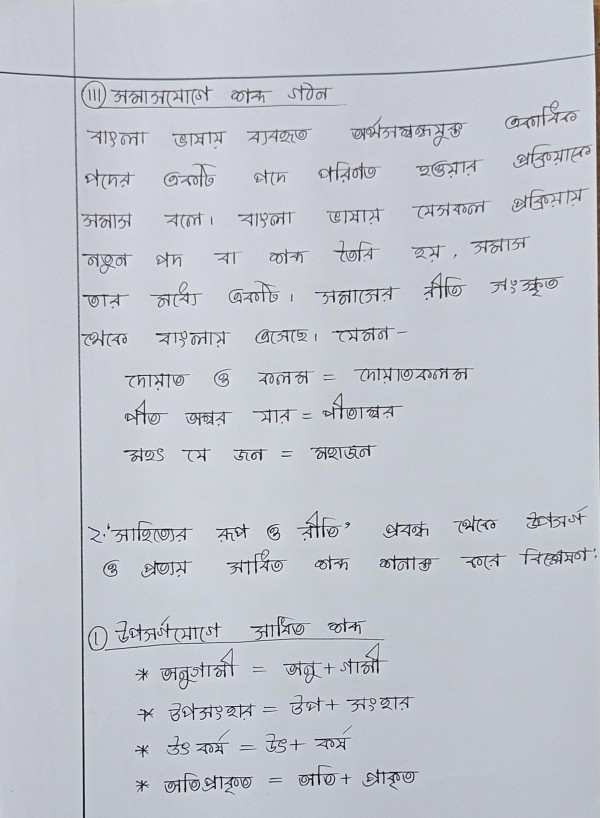 (III) সমাসযোগে শব্দ গঠন
বাংলা ভাষায় ব্যবহৃত অর্থসম্বন্ধযুক্ত একাধিক
পদের একটি পদে পরিণত হওয়ার প্রক্রিয়াকে
সমাস বলে। বাংলা ভাষায় যেসকল প্রক্রিয়ায়
নতুন পদ বা শব্দ তৈরি হয়, সমাস
তার মধ্যে একটি। সমাসের রীতি সংস্কৃত
থেকে বাংলায় এসেছে। যেমন-
দোয়াত ও কলম = দোয়াতকলম
পীত অম্বর যার = পীতাম্বর
মহৎ যে জন = মহাজন
২. 'সাহিত্যের রূপ ও রীতি' প্রবন্ধ থেকে উপসর্গ
ও প্রত্যয় সাধিত শব্দ শনাক্ত করে বিশ্লেষণ:
(I) উপসর্গযোগে সাধিত শব্দ
* অনুগামী = অনু + গামী
* উপসংহার = উপ + সংহার
* উৎকর্ষ = উৎ + কর্ষ
* অতিপ্রাকৃত = অতি + প্রাকৃত